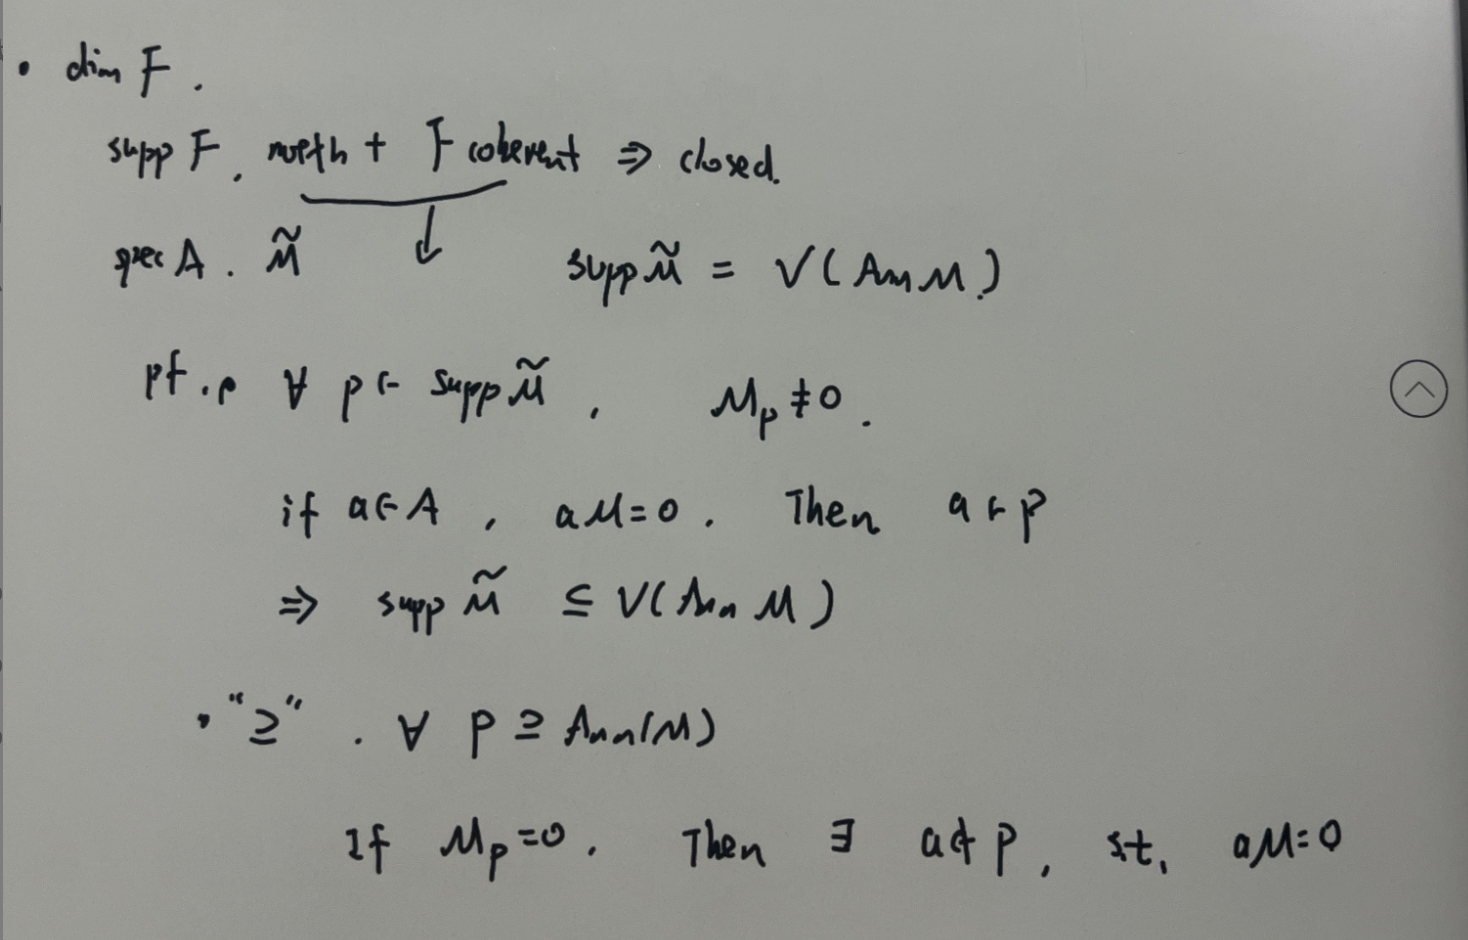 • dim F.
supp F, noeth + F coherent ⇒ closed.
↓
spec A. M̃ supp M̃ = V(Ann M.)
pf. ∀ p ∈ supp M̃, M_p ≠ 0.
if a ∈ A, aM=0. Then a ∈ p
⇒ supp M̃ ⊆ V(Ann M)
• "⊇". ∀ p ⊇ Ann(M)
If M_p = 0. Then ∃ a ∉ p, st. aM=0